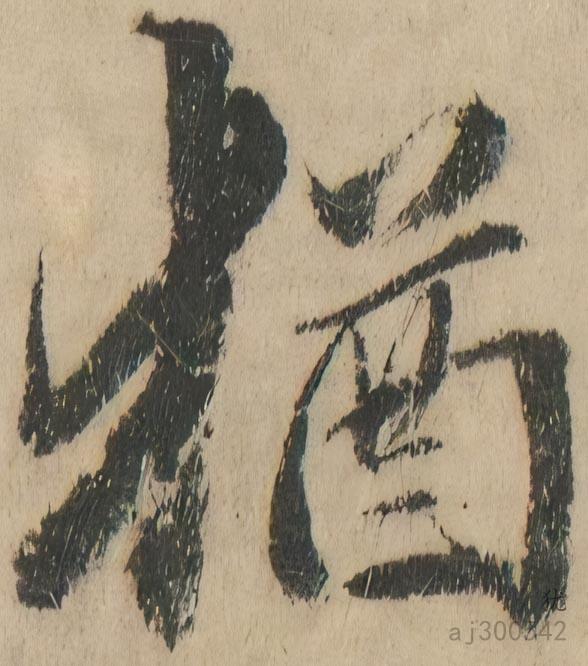 猶
犹
aj300342